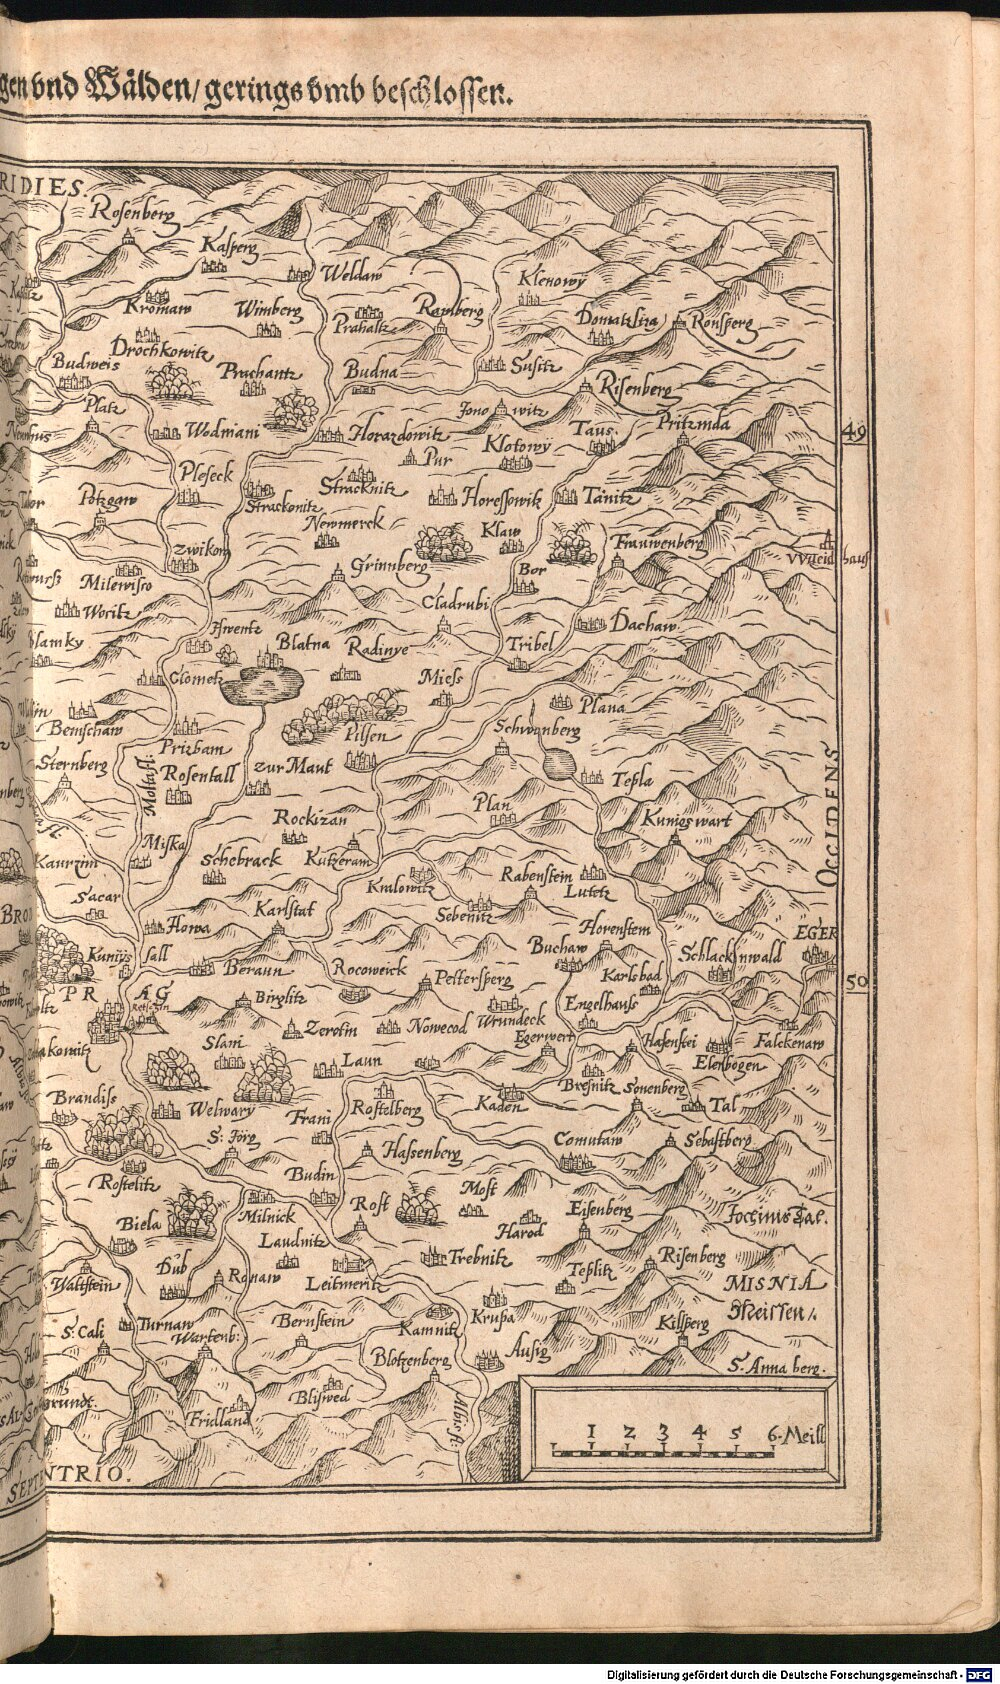 gen vnd Wälden/ gerings vmb beschlossen.
RIDIES.
Rosenberg
Kasperg
Weldaw
Klenowÿ
Kromaw
Wimberg
Prahaltz
Ramberg
Domatzliza
Ronsperg
Drochkowitz
Budweis
Prachantz
Budna
Susitz
Risenberg
Platz
Wodniani
Horazdowitz
Jono witz
Taus.
Pritzmda
Klotowÿ
Pur
49
Pleseck
Stracknitz
Potzgaw
Strackonitz
Horessowik
Tanitz
Newmerck
Klaw
Frauwenberg
zwikom
Grinnberg
Bor
VVueid haus
Milewisco
Cladrubi
Woritz
Dachaw.
Blatna
Radinye
Tribel
lamky
Clometz
Miess
Plana
Bemschaw
Pilsen
Schwanberg
Prizbam
Sternberg
Rosentall
zur Maut
Tepla
Moltafl:
Rockizan
Plan
Kunigswart
OCCIDENS
Miska
Schebrack
Kutzeram
Kaurzim
Kralowitz
Rabenstein
Lutetz
Sacar
Karlstat
Sebenitz
Howa
Horenstem
BROD
EGER
Kunÿs sall
Beraun
Rocoweick
Buchaw
Schlackinwald
Karlsbad
Pettersperg
50
PR AG
Birglitz
Engelhauss
Zerosin
Nowecod
Wrundeck
Egerwert
Hasenstei
Falckenaw
Slani
Elenbogen
Laun
Bresnitz
Sonenberg
Brandiss
Welwary
Rostelberg
Kaden
Tal
Frani
S: Jörg
Comutaw
Sebastberg
Hassenberg
Rostelitz
Budin
Most
Biela
Milnick
Rost
Eisenberg
Harod
Laudnitz
Dub
Ronaw
Trebnitz
Risenberg
Waltstein
Leitmeritz
Teplitz
MISNIA
Meissen/.
Krupa
Turnaw
Bernstein
Kamnitz
Kilsperg
S: Cali
Wartenb:
Ausig
Blotzenberg
S. Anna berg.
Bliswed
grundt.
Fridland
Albis fl:
1 2 3 4 5 6. Meill
SEPTENTRIO.
Digitalisierung gefördert durch die Deutsche Forschungsgemeinschaft - DFG